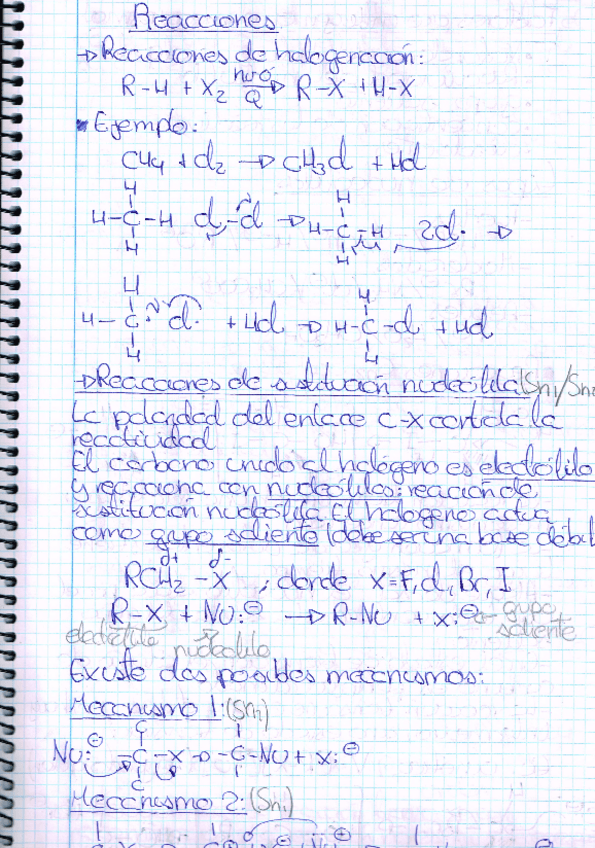 Reacciones
→ Reacciones de halogenación:
R-H + X₂ → R-X + H-X
hν o
Q
• Ejemplo:
CH₄ + Cl₂ → CH₃Cl + HCl
H
H-C-H Cl-Cl → H-C-H 2Cl· →
H
H
H
H
H
H-C· Cl· + HCl → H-C-Cl + HCl
H
H
→ Reacciones de sustitución nucleófila (Sn₁/Sn₂
La polaridad del enlace C-X controla la
reactividad
El carbono unido al halógeno es electrófilo
y reacciona con nucleófilos: reacción de
sustitución nucleófila. El halógeno actúa
como grupo saliente (debe ser una base débil
δ+ δ-
RCH₂-X, donde X=F, Cl, Br, I
R-X + NU:⊖ → R-NU + X:⊖ ← grupo
saliente
electrófilo nucleófilo
Existe dos posibles mecanismos:
Mecanismo 1: (Sn₂)
C
NU:⊖ -C-X → -C-NU + X:⊖
C
Mecanismo 2: (Sn₁)